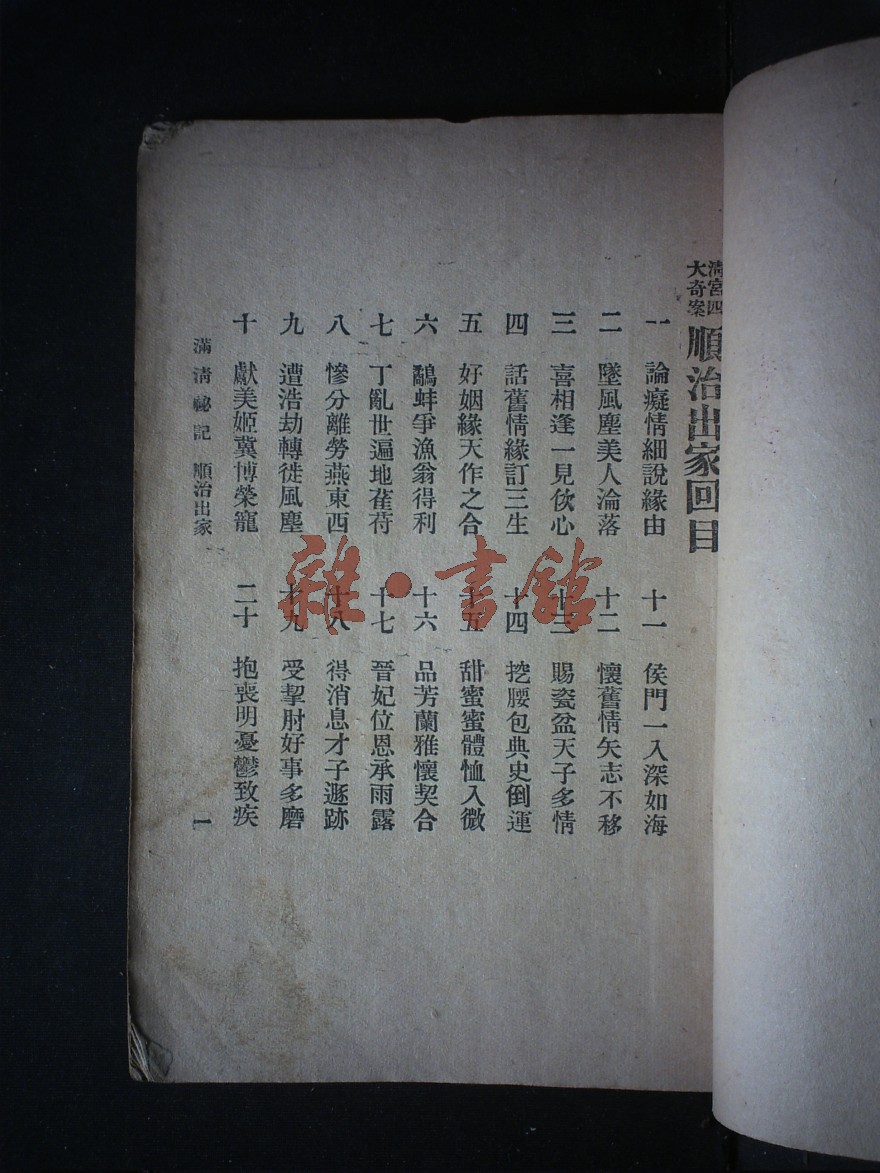 清宮四大奇案 順治出家回目
一 論癡情細說緣由
二 墜風塵美人淪落
三 喜相逢一見傾心
四 話舊情緣訂三生
五 好姻緣天作之合
六 鷸蚌爭漁翁得利
七 丁亂世遍地萑苻
八 慘分離勞燕東西
九 遭浩劫轉徙風塵
十 獻美姬冀博榮寵
十一 侯門一入深如海
十二 懷舊情矢志不移
十三 賜瓷盆天子多情
十四 挖腰包典史倒運
十五 甜蜜蜜體恤入微
十六 品芳蘭雅懷契合
十七 晉妃位恩承雨露
十八 得消息才子遯跡
十九 受掣肘好事多磨
二十 抱喪明憂鬱致疾
滿清祕記 順治出家 一
雜·書館